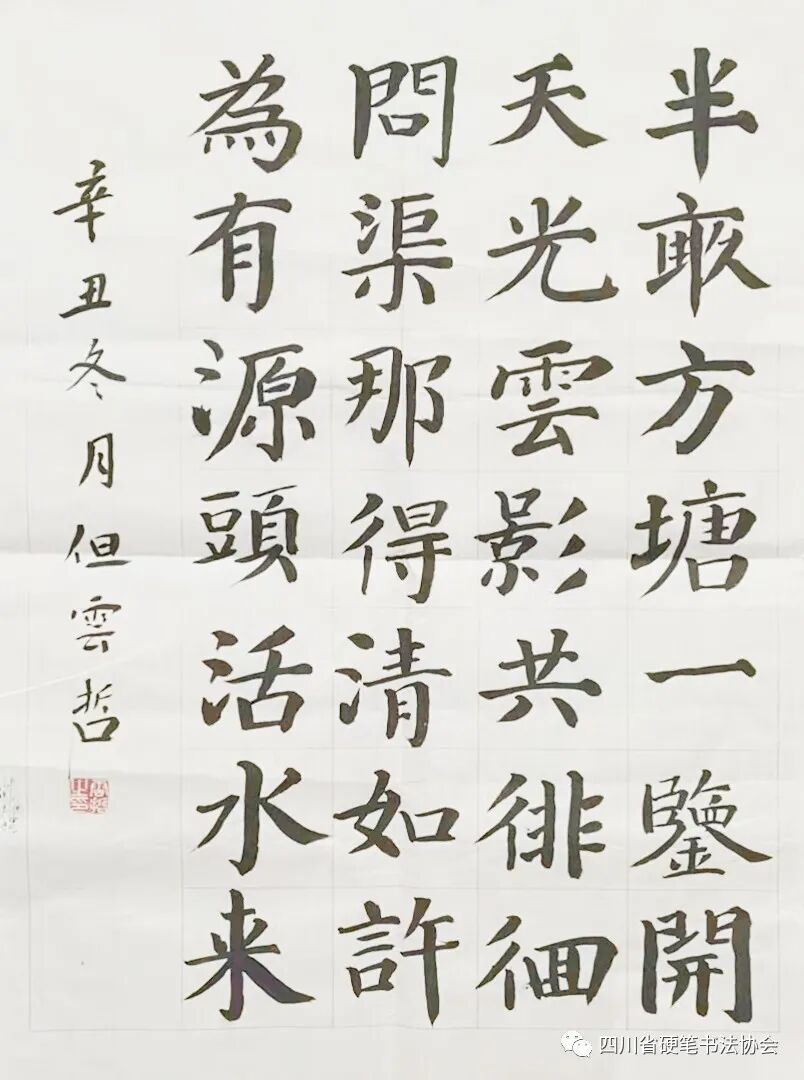 半畝方塘一鑒開
天光雲影共徘徊
問渠那得清如許
為有源頭活水来
辛丑冬月但雲哲
四川省硬笔书法协会